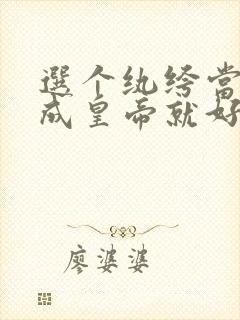 選个纨绔当
成皇帝就好
廖婆婆